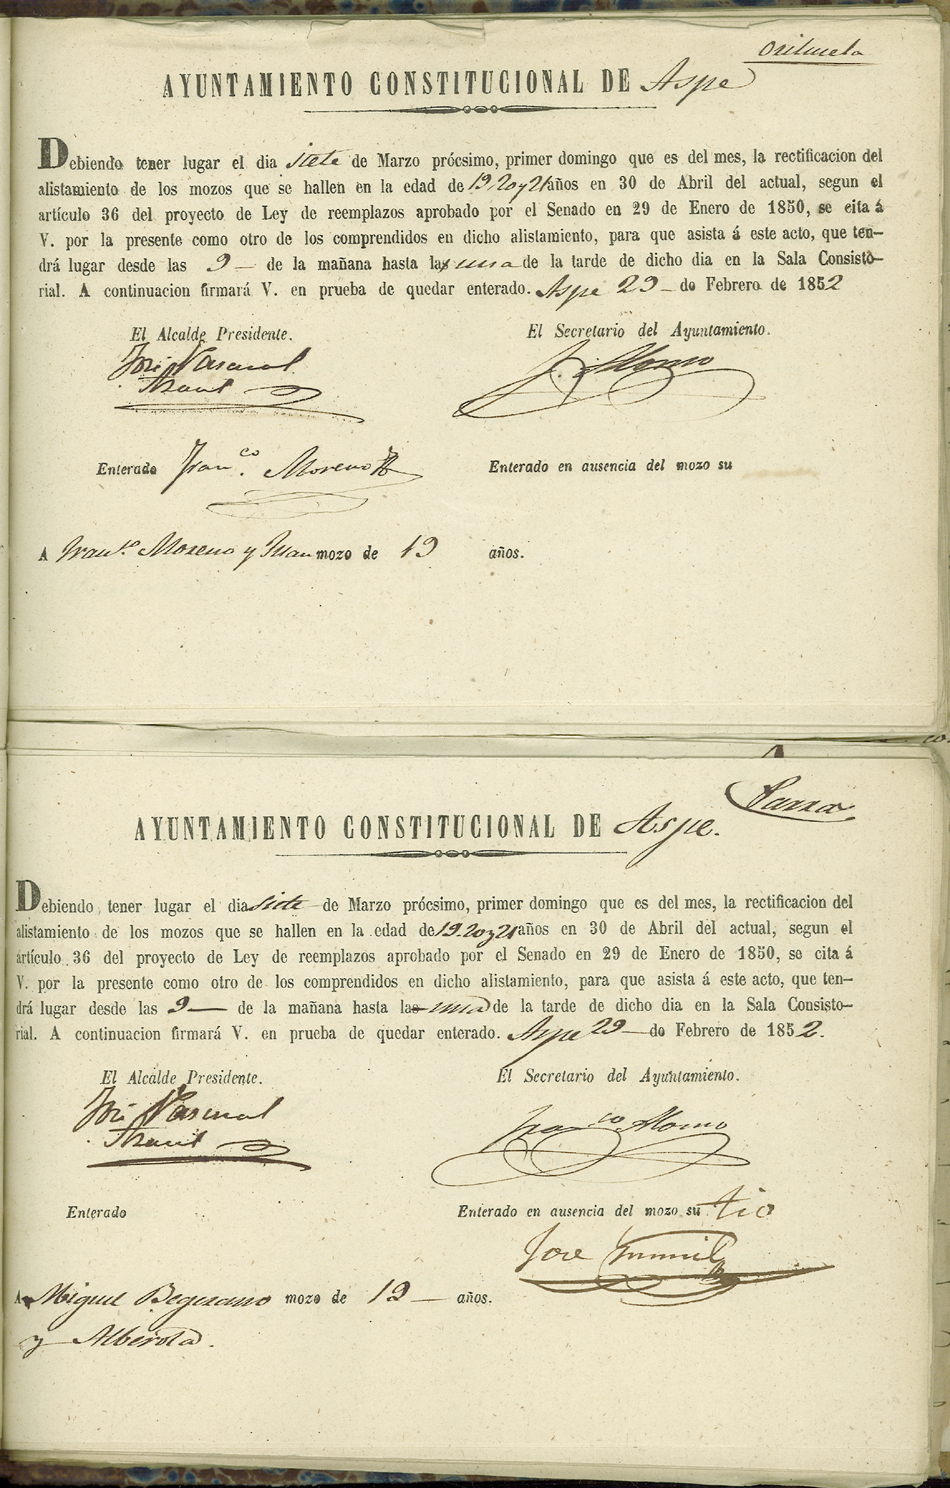 Orihuela
AYUNTAMIENTO CONSTITUCIONAL DE Aspe
Debiendo tener lugar el dia siete de Marzo prócsimo, primer domingo que es del mes, la rectificacion del
alistamiento de los mozos que se hallen en la edad de 19. 20 y 21 años en 30 de Abril del actual, segun el
artículo 36 del proyecto de Ley de reemplazos aprobado por el Senado en 29 de Enero de 1850, se cita á
V. por la presente como otro de los comprendidos en dicho alistamiento, para que asista á este acto, que ten-
drá lugar desde las 9 — de la mañana hasta las una de la tarde de dicho dia en la Sala Consisto-
rial. A continuacion firmará V. en prueba de quedar enterado. Aspe 29 — de Febrero de 1852
El Alcalde Presidente. El Secretario del Ayuntamiento.
José Pascual
Alonso
Enterado Fran.co Moreno Enterado en ausencia del mozo su
A Fran.co Moreno y Juan mozo de 19 años.
Parra
AYUNTAMIENTO CONSTITUCIONAL DE Aspe.
Debiendo tener lugar el dia siete de Marzo prócsimo, primer domingo que es del mes, la rectificacion del
alistamiento de los mozos que se hallen en la edad de 19. 20 y 21 años en 30 de Abril del actual, segun el
artículo 36 del proyecto de Ley de reemplazos aprobado por el Senado en 29 de Enero de 1850, se cita á
V. por la presente como otro de los comprendidos en dicho alistamiento, para que asista á este acto, que ten-
drá lugar desde las 9 — de la mañana hasta las una de la tarde de dicho dia en la Sala Consisto-
rial. A continuacion firmará V. en prueba de quedar enterado. Aspe 29 — de Febrero de 1852.
El Alcalde Presidente. El Secretario del Ayuntamiento.
José Pascual
Fran.co Alonso
Enterado Enterado en ausencia del mozo su tio
Jose
A Miguel Begerano mozo de 19 — años.
y Alberola.